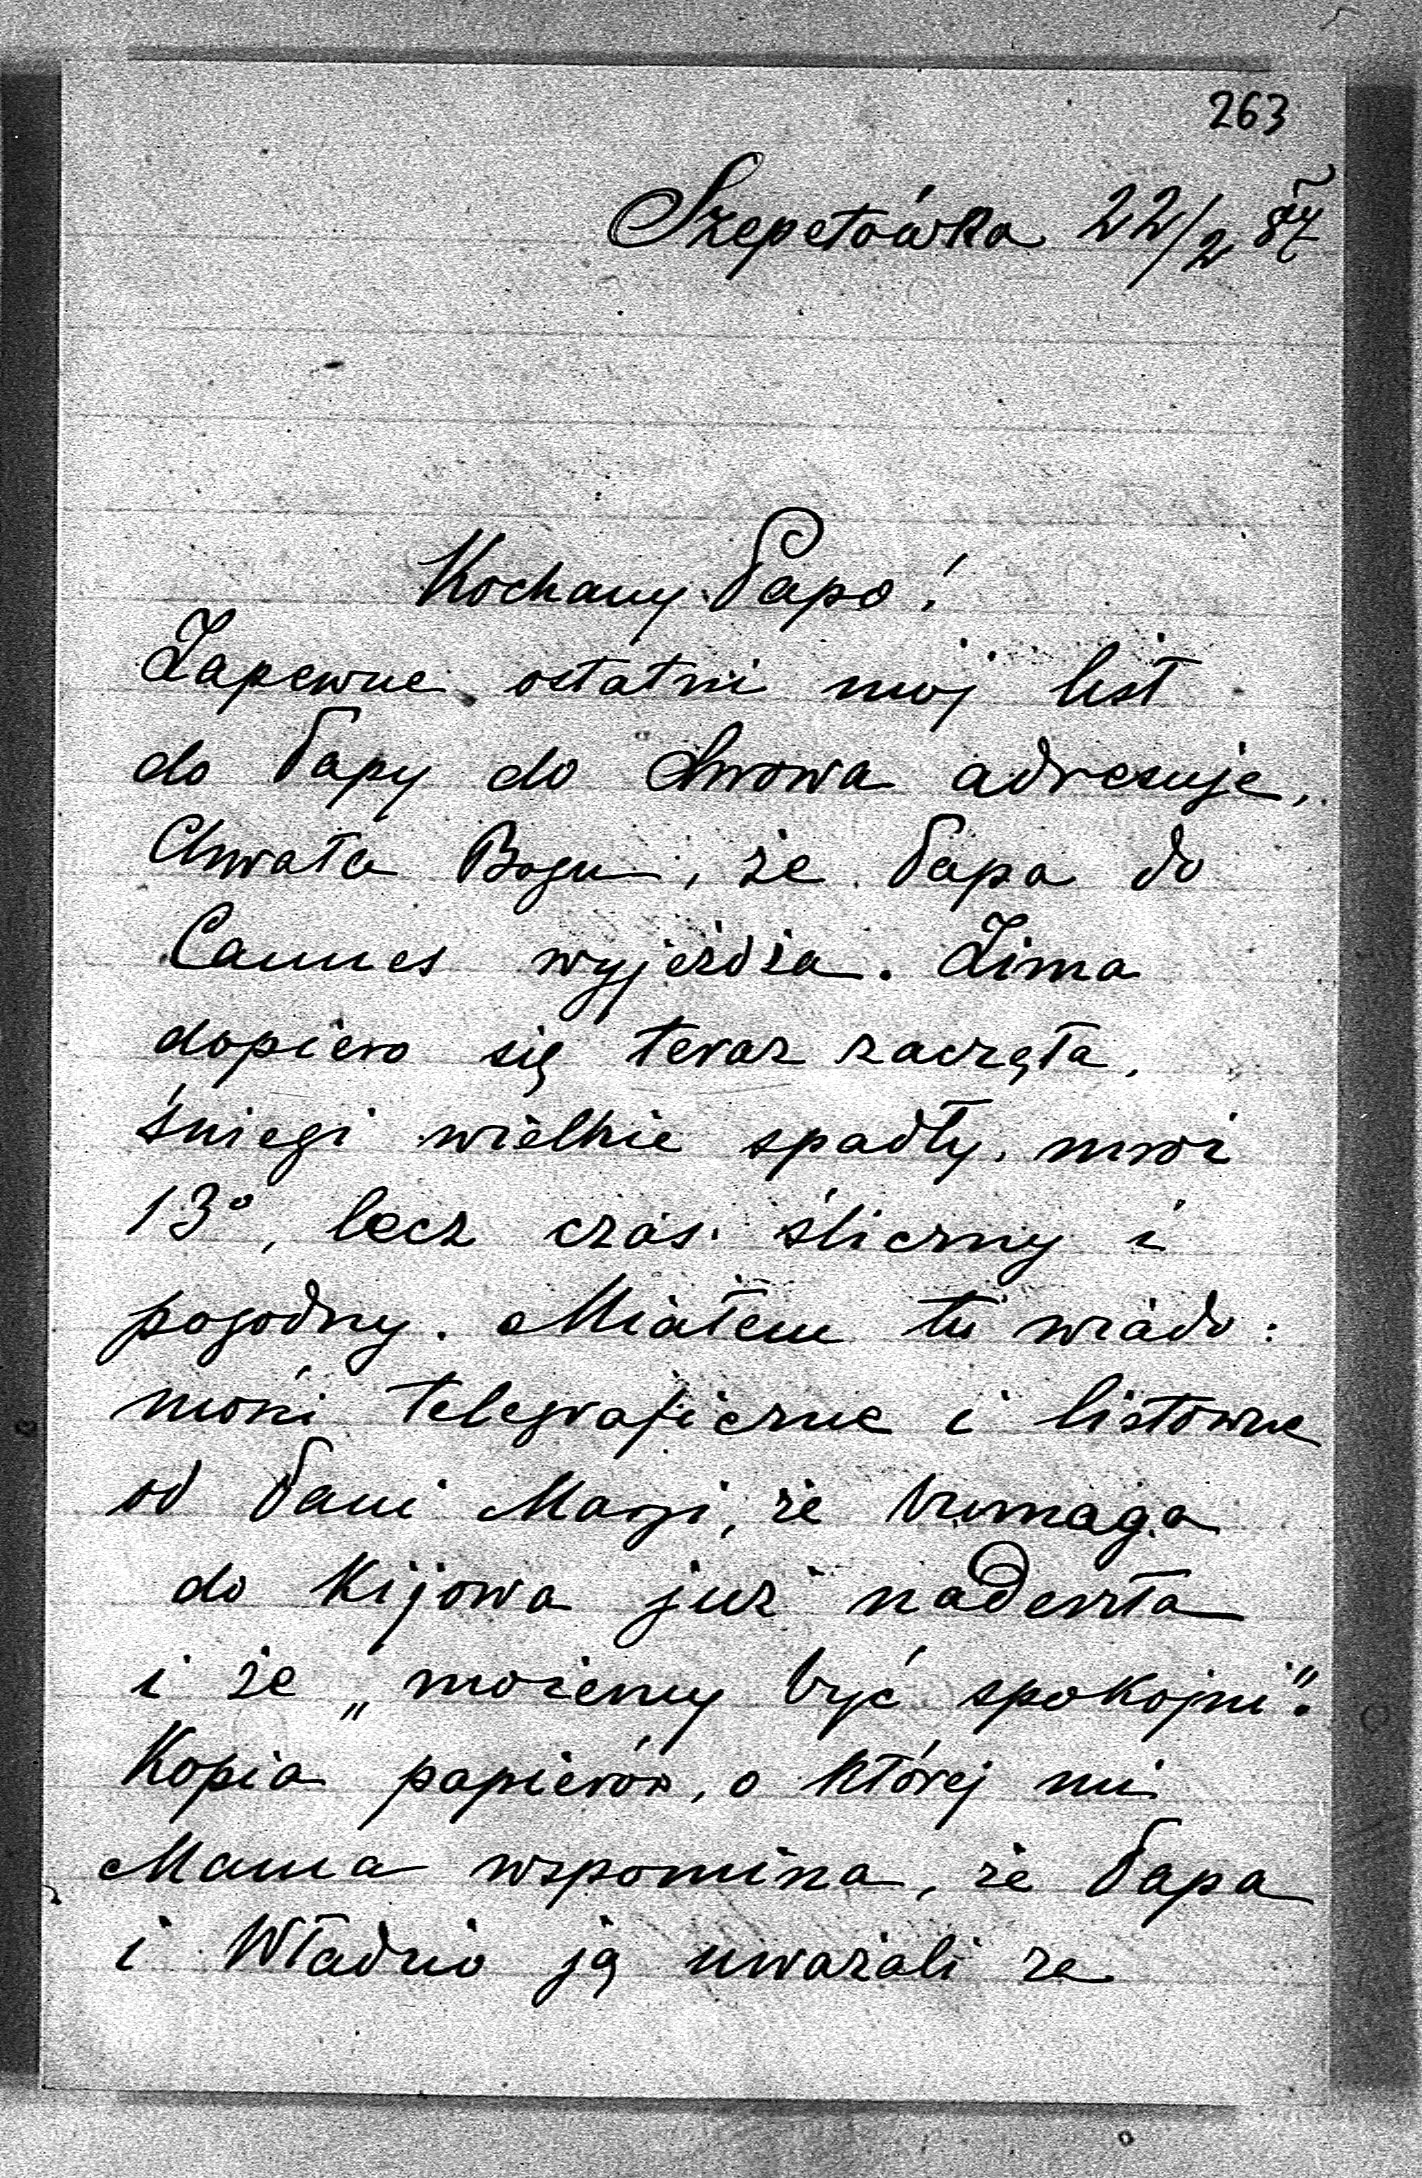 263
Szepetówka 22/2 87
Kochany Papo!
Zapewne ostatni mój list
do Papy do Lwowa adresuje,
Chwała Bogu, że Papa do
Cannes wyjeżdża. Zima
dopiero się teraz zaczęła,
śniegi wielkie spadły, mróz
13°, lecz czas śliczny i
pogodny. Miałem tu wiado:
mości telegraficzne i listowne
od Pani Maryi, że bumaga
do Kijowa już nadeszła
i że „możemy być spokojni".
Kopia papierów, o której mi
Mama wspomina, że Papa
i Władzio ją uważali za